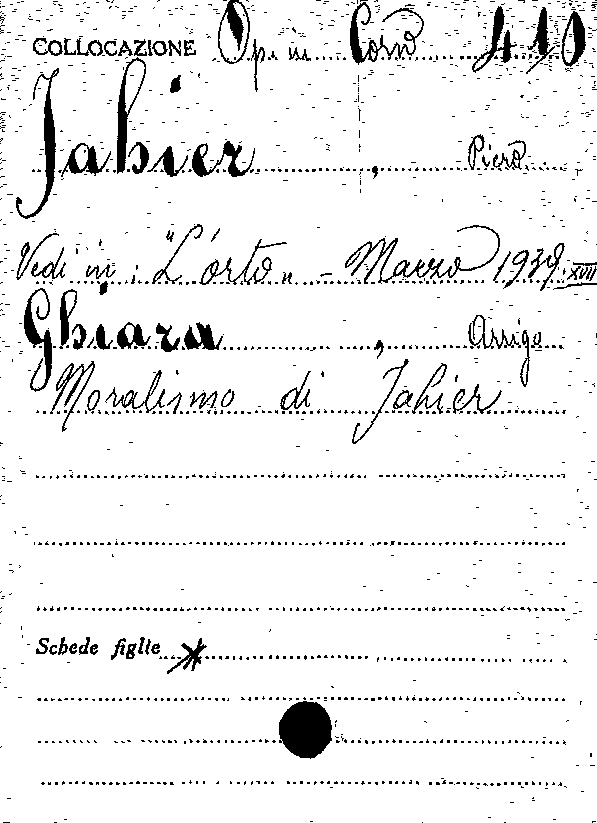 COLLOCAZIONE Op. in Corso 410
Jahier, Piero
Vedi in: "L'orto" - Marzo 1939. XVII
Ghiara, Arrigo
Moralismo di Jahier
Schede figlie